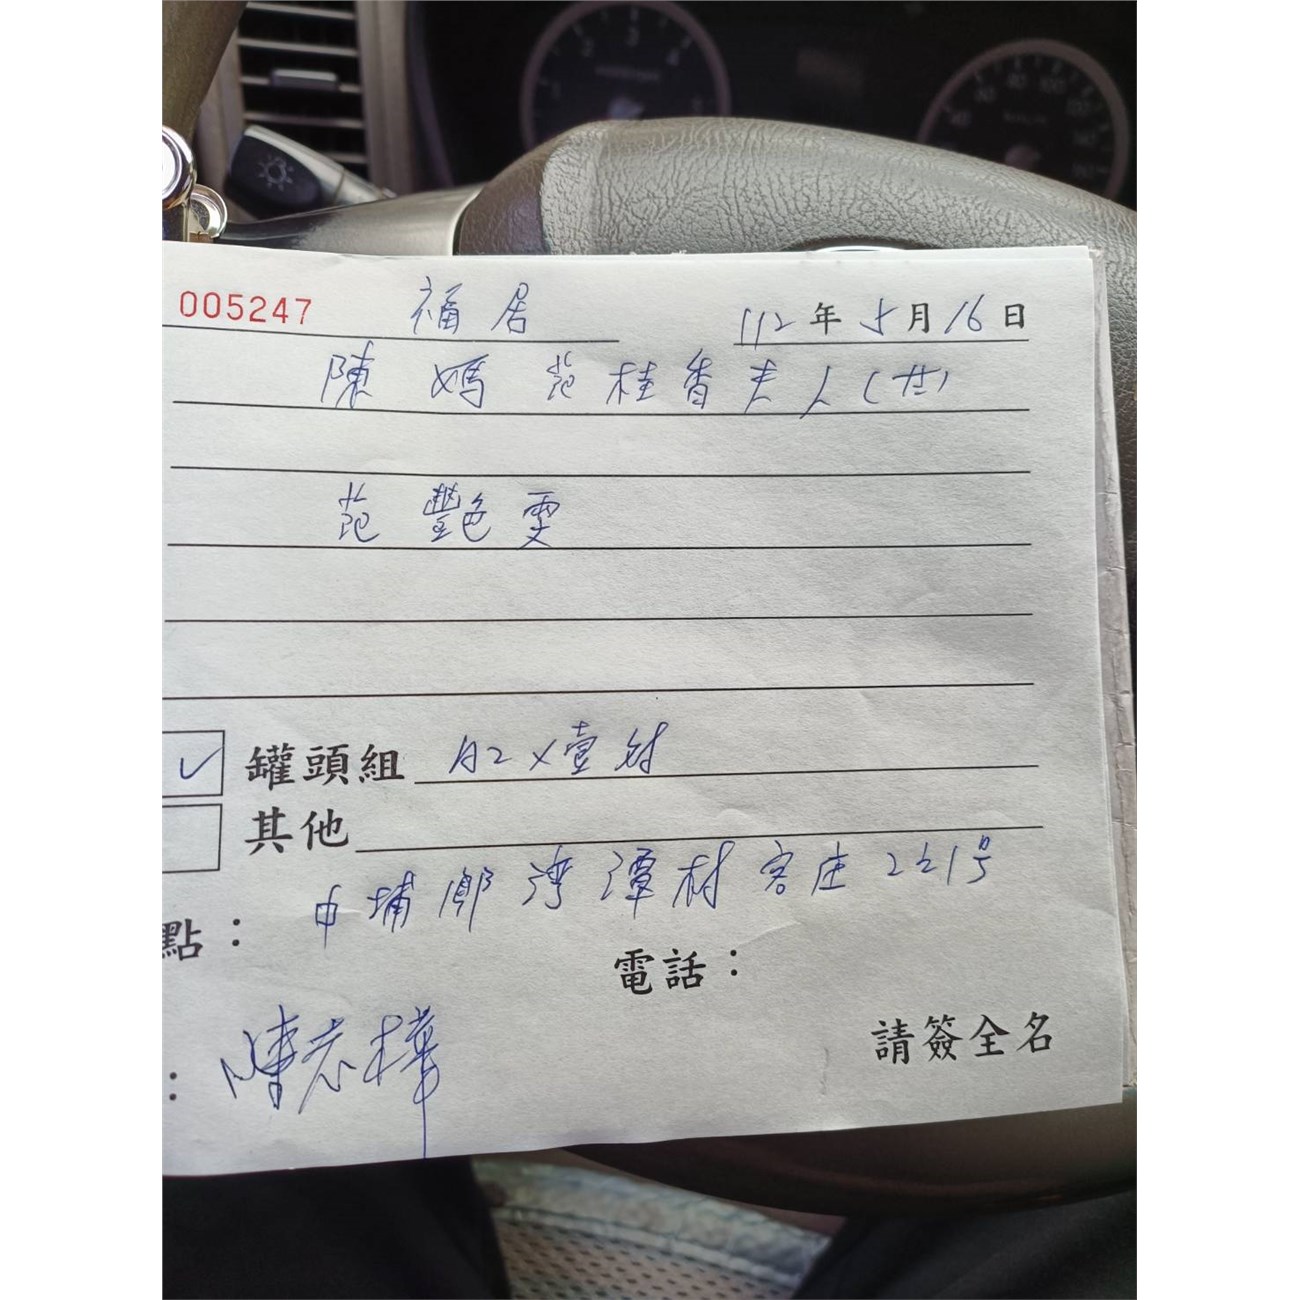 005247 福居 112年5月16日
陳媽范桂香夫人(廿)
范艷雯
✓ 罐頭組 A2×壹対
其他
點： 中埔鄉灣潭村客庄221号
電話：
請簽全名
： 陳志樺